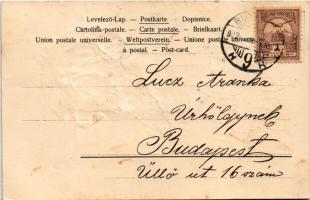 Levelező-Lap. — Postkarte. — Dopisnice.
Cartolina-postale. — Carte postale. — Briefkaart.
Union postale universelle. — Weltpostverein. — Unione postale
à postal. — Post-card.
Lucz Aranka
Úrhölgynek
Budapest
Üllő út 16 szám